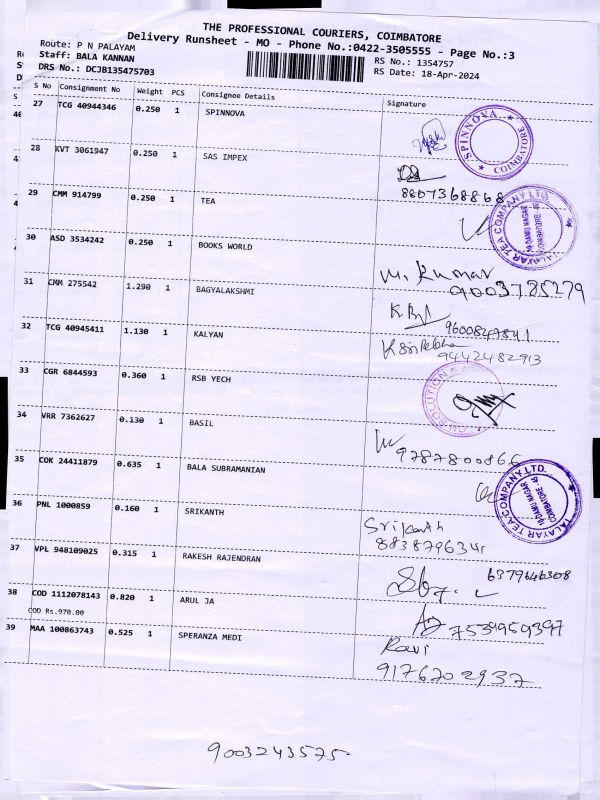 THE PROFESSIONAL COURIERS, COIMBATORE
Delivery Runsheet - MO - Phone No.:0422-3505555 - Page No.:3
Route: P N PALAYAM
Staff: BALA KANNAN
DRS No.: DCJB135475703
RS No.: 1354757
RS Date: 18-Apr-2024
S No Consignment No Weight PCS Consignee Details Signature
27 TCG 40944346 0.250 1 SPINNOVA
SPINNOVA COIMBATORE
28 KVT 3061947 0.250 1 SAS IMPEX
8807368868
29 CMM 914799 0.250 1 TEA
TALAYAR TEA COMPANY LTD.
30 ASD 3534242 0.250 1 BOOKS WORLD
M. Kumar
9003785279
31 CMM 275542 1.290 1 BAGYALAKSHMI
9600847841
32 TCG 40945411 1.130 1 KALYAN
9442482913
33 CGR 6844593 0.360 1 RSB YECH
SOLUTION
34 VRR 7362627 0.130 1 BASIL
9787800866
35 COK 24411879 0.635 1 BALA SUBRAMANIAN
TALAYAR TEA COMPANY LTD.
COIMBATORE - 45
36 PNL 1000859 0.160 1 SRIKANTH
Srikanth
37 VPL 948109025 0.315 1 RAKESH RAJENDRAN
6379646308
38 COD 1112078143 0.820 1 ARUL JA
COD Rs.970.00
7539959397
39 MAA 100863743 0.525 1 SPERANZA MEDI
Ravi
9176702937
9003243575